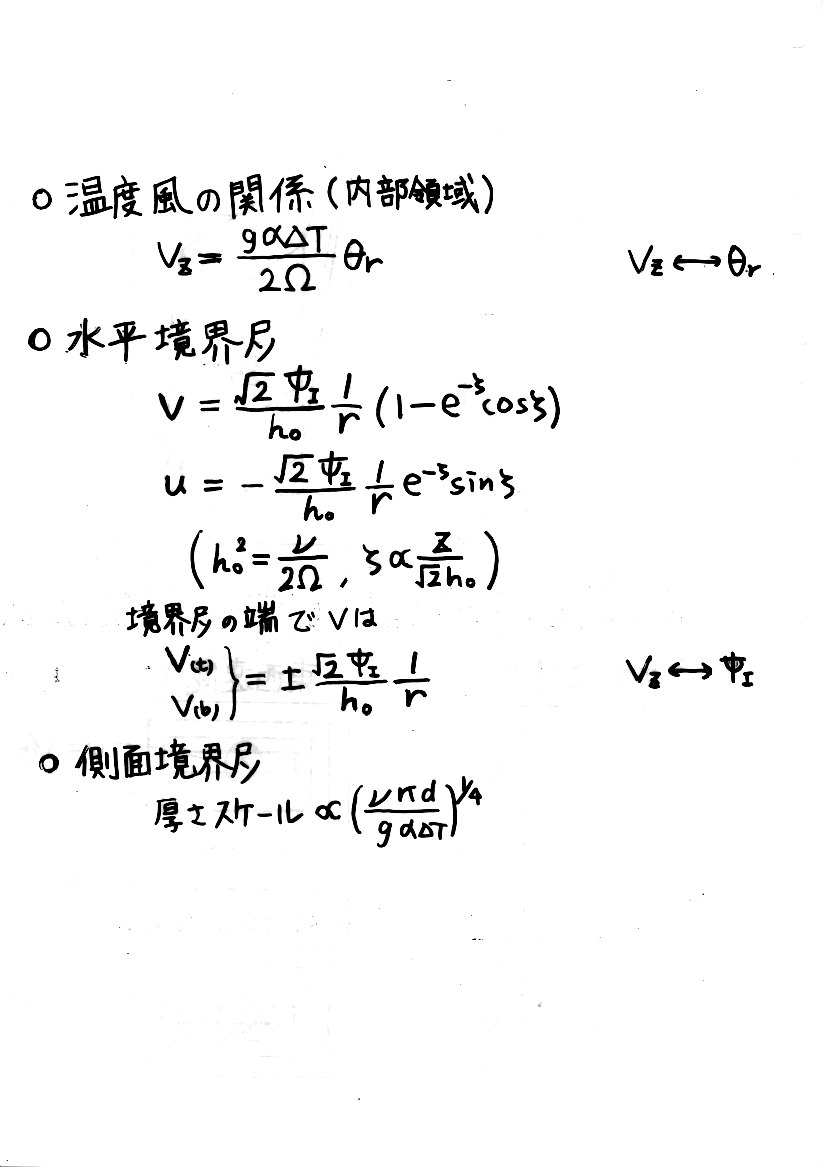 ○ 温度風の関係(内部領域)
V_z = gαΔT / 2Ω θ_r    V_z ↔ θ_r
○ 水平境界尸
V = √2 ψ_I / h_0 1/r (1 − e^{−ζ} cosζ)
u = − √2 ψ_I / h_0 1/r e^{−ζ} sinζ
(h_0^2 = ν / 2Ω , ζ ∝ z / √2 h_0)
境界尸の端で V は
V(t) V(b) } = ± √2 ψ_I / h_0 1/r    V_z ↔ ψ_I
○ 側面境界尸
厚さスケール ∝ (νκd / gαΔT)^{1/4}